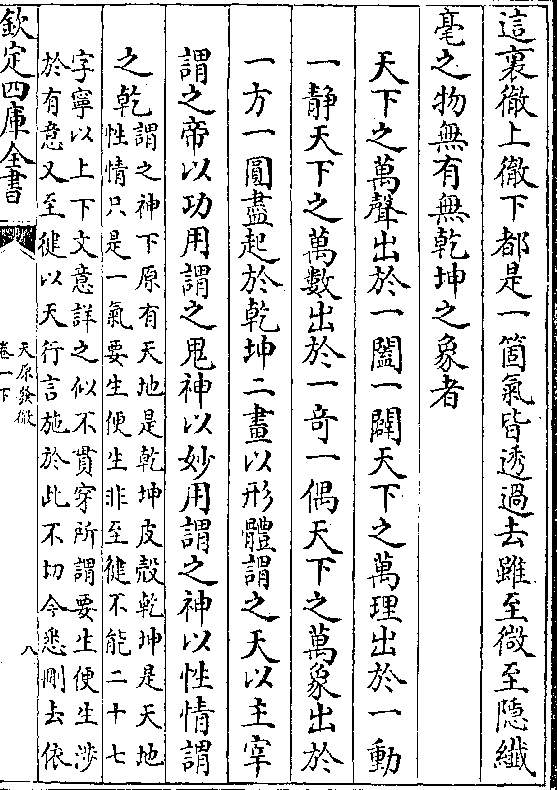 這裏徹上徹下都是一箇氣皆透過去雖至微至隱纖
毫之物無有無乾坤之象者
天下之萬聲出於一闔一闢天下之萬理出於一動
一靜天下之萬數出於一奇一偶天下之萬象出於
一方一圓盡起於乾坤二畫以形體謂之天以主宰
謂之帝以功用謂之鬼神以妙用謂之神以性情謂
之乾
謂之神下原有天地是乾坤皮殼乾坤是天地
性情只是一氣要生便生非至健不能二十七
字寧以上下文意詳之似不貫穿所謂要生便生涉
於有意又至健以天行言施於此不切今悉刪去依
欽定四庫全書
天原發微
卷一下
八